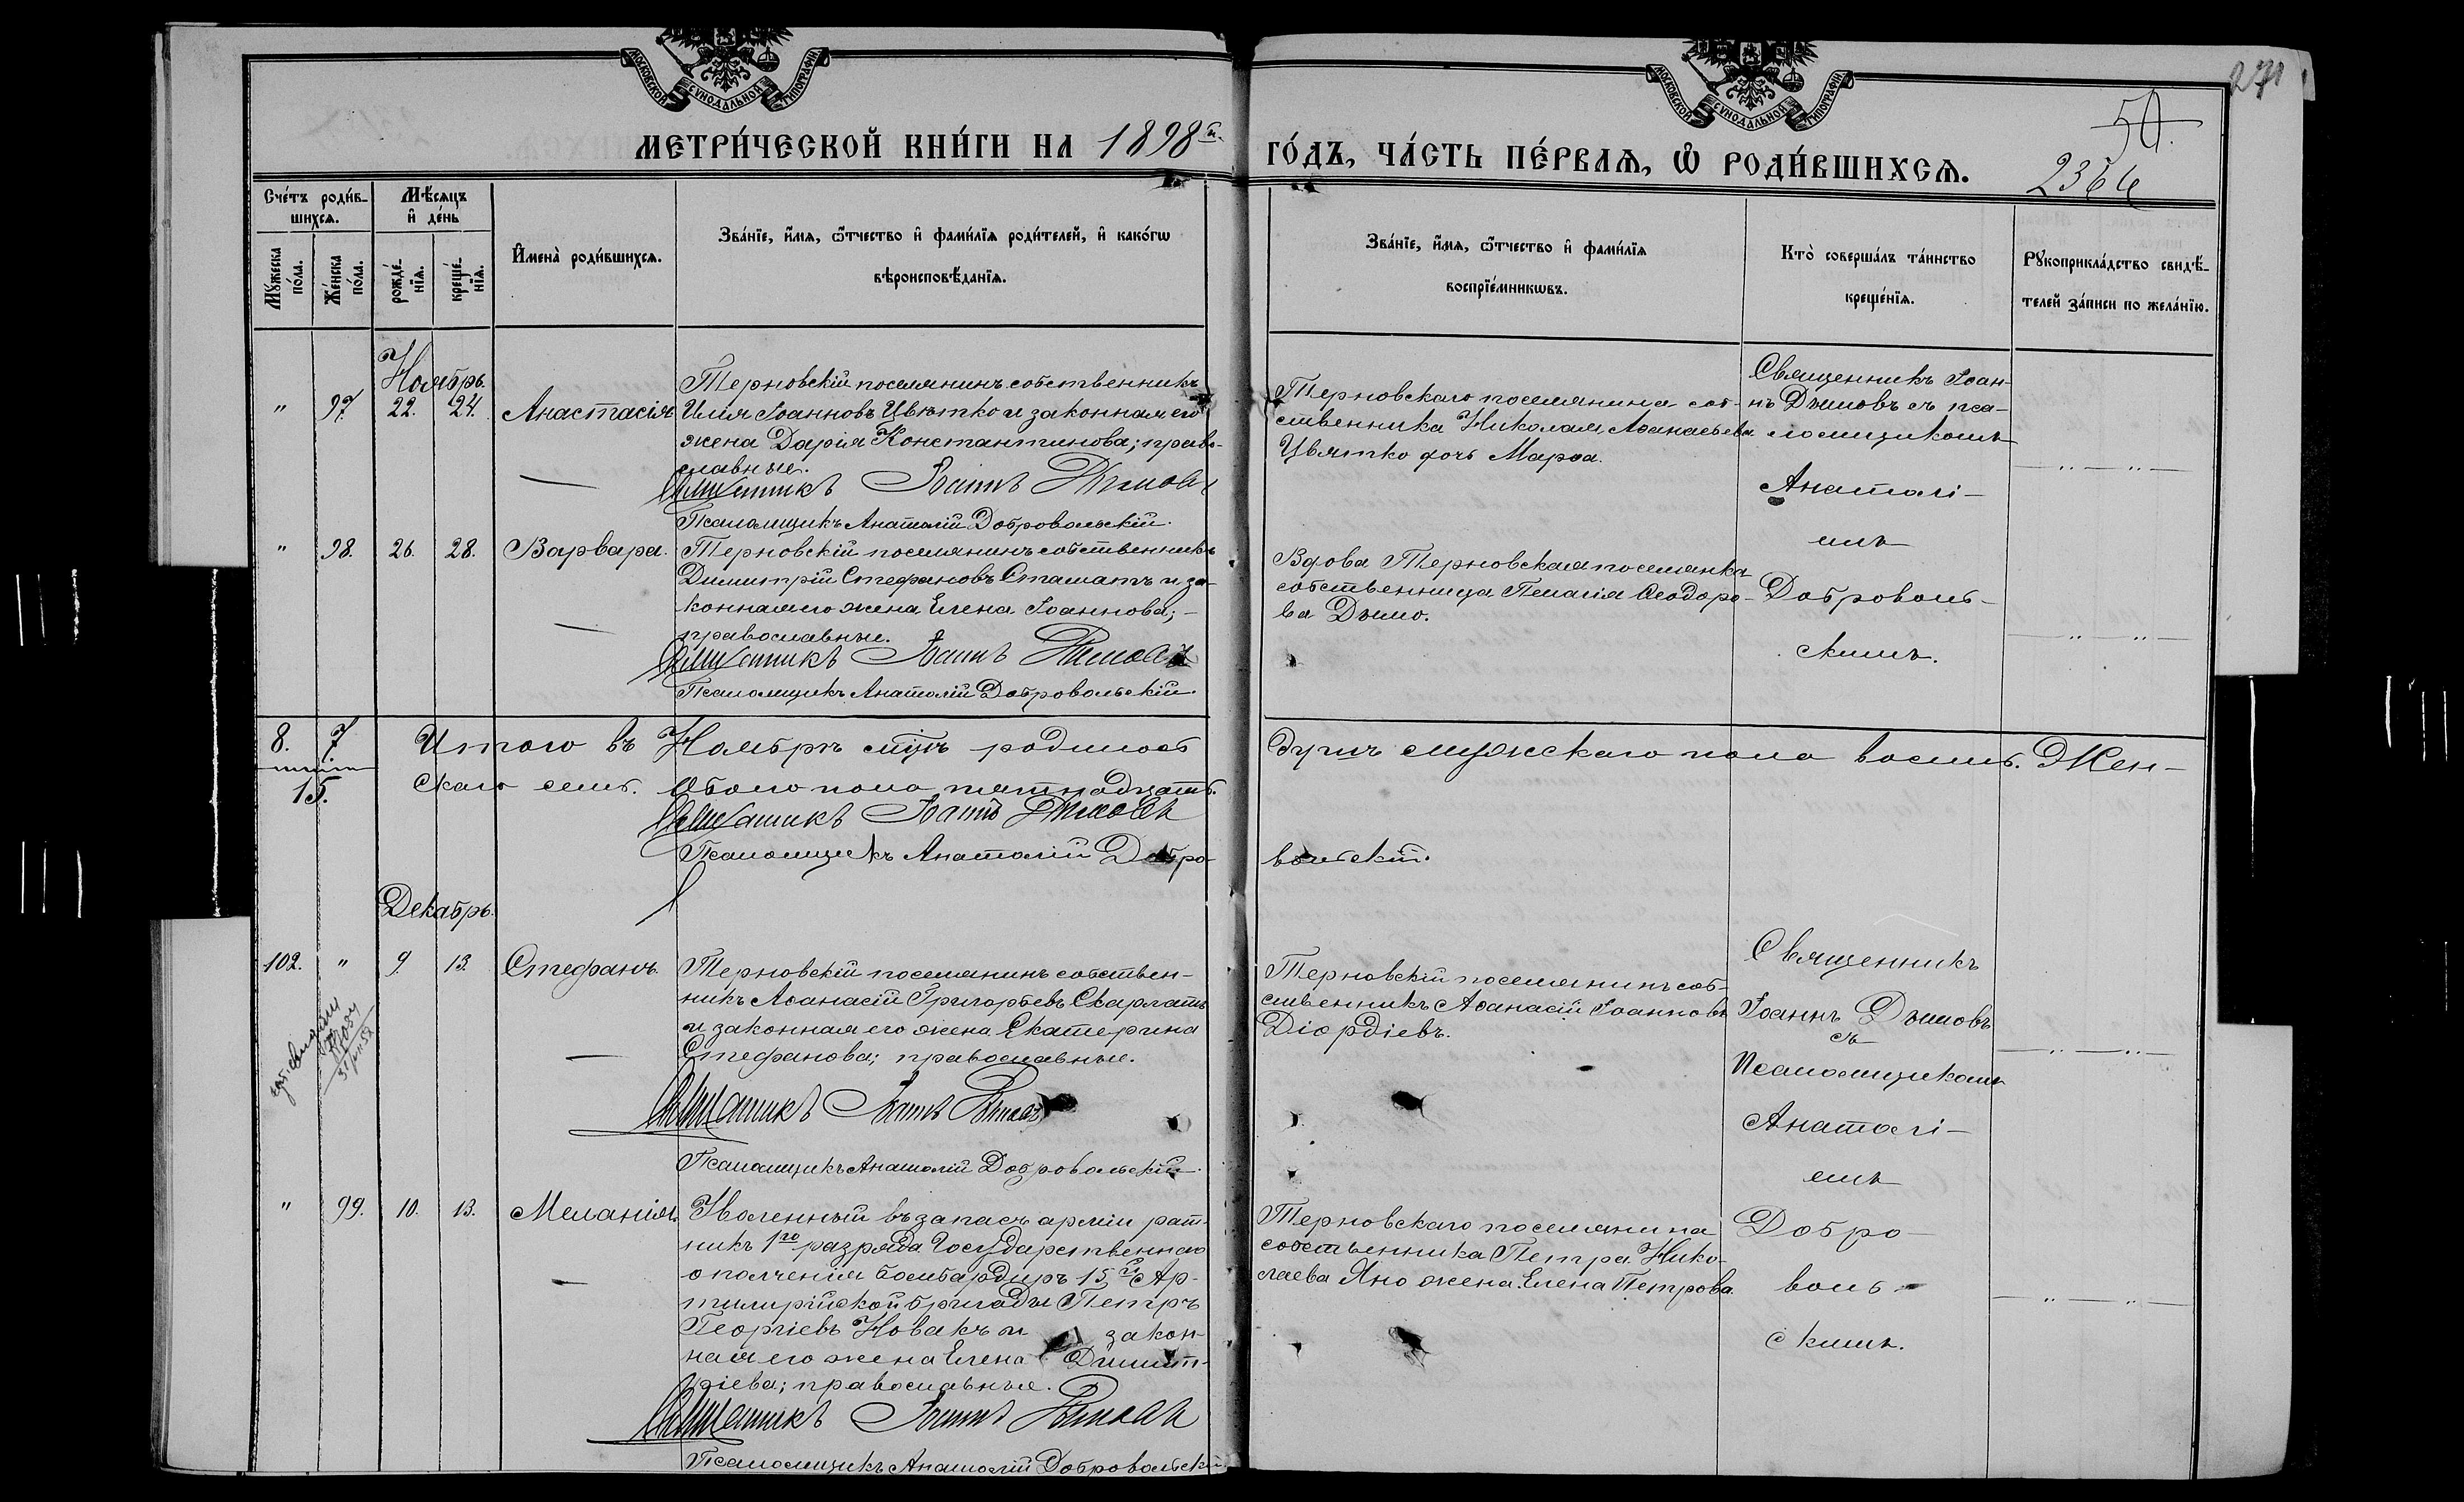 МОСКОВСКОЙ СУНОДАЛЬНОЙ ТИПОГРАФІИ
МОСКОВСКОЙ СУНОДАЛЬНОЙ ТИПОГРАФІИ
271
50.
2364
МЕТРИ́ЧЕСКОЙ КНИ́ГИ НА 1898й
ГО́ДЪ, ЧА́СТЬ ПЕ́РВАѦ, Ѡ РОДИ́ВШИХСѦ.
Сче́тъ роди́в-
шихсѧ.
Мѣ́сѧцъ
и҆ де́нь
Мꙋ́жеска
по́ла.
Же́нска
по́ла.
рожде́-
нїѧ.
креще́-
нїѧ.
И҆мена̀ роди́вшихсѧ.
Зва́нїе, и҆́мѧ, ѻ҆́тчество и҆ фами́лїѧ роди́телей, и҆ како́гѡ
вѣроисповѣ́данїѧ.
Зва́нїе, и҆́мѧ, ѻ҆́тчество и҆ фами́лїѧ
воспрїе́мникѡвъ.
Кто̀ соверша́лъ та́инство
креще́нїѧ.
Рꙋкоприкла́дство свидѣ́-
телей за́писи по жела́нїю.
Ноябрь.
" 97. 22. 24. Анастасія
Терновскій поселянинъ собственникъ
Илія Іоанновъ Цвятко и законная его
жена Дарія Константинова; право-
славные.
Священникъ Іоаннъ Дымовъ
Псаломщикъ Анатолій Добровольскій.
Терновскаго поселянина соб-
ственника Николая Аѳанасьева
Цвятко дочь Марѳа.
Священникъ Іоан-
нъ Дымовъ съ пса-
ломщикомъ
Анатолі-
емъ
Доброволь-
скимъ.
" 98. 26. 28. Варвара.
Терновскій поселянинъ собственникъ
Димитрій Стефановъ Стаматъ и за-
конная его жена Елена Іоаннова; -
православные.
Священникъ Іоаннъ Дымовъ
Псаломщикъ Анатолій Добровольскій.
Вдова Терновская поселянка
собственница Пелагія Ѳеодоро-
ва Дымо.
8. 7 Итого въ Ноябрѣ мцѣ родилось душъ мужскаго пола восемь. Жен-
15. скаго семь. Обоего пола пятнадцать.
Священникъ Іоаннъ Дымовъ
Псаломщикъ Анатолій Добро- вольскій.
Декабрь.
102. " 9. 13. Стефанъ.
Терновскій поселянинъ собствен-
никъ Аѳанасій Григорьевъ Скарлатъ
и законная его жена Екатерина
Стефанова; православные.
Священникъ Іоаннъ Дымовъ
Псаломщикъ Анатолій Добровольскій.
Терновскій поселянинъ соб-
ственникъ Аѳанасій Іоанновъ
Діордіевъ.
Священникъ
Іоаннъ Дымовъ
съ
Псаломщикомъ
Анатолі-
емъ
Добро-
воль-
скимъ.
" 99. 10. 13. Меланія.
Уволенный въ запасъ арміи рат-
никъ 1го разряда Государственнаго
ополченія бомбардиръ 15й Ар-
тилирійской бригады Петръ
Георгіевъ Новакъ и закон-
ная его жена Елена Димит-
ріева; православные.
Священникъ Іоаннъ Дымовъ
Псаломщикъ Анатолій Добровольскій
Терновскаго поселянина
собственника Петра Нико-
лаева Яно жена Елена Петрова.